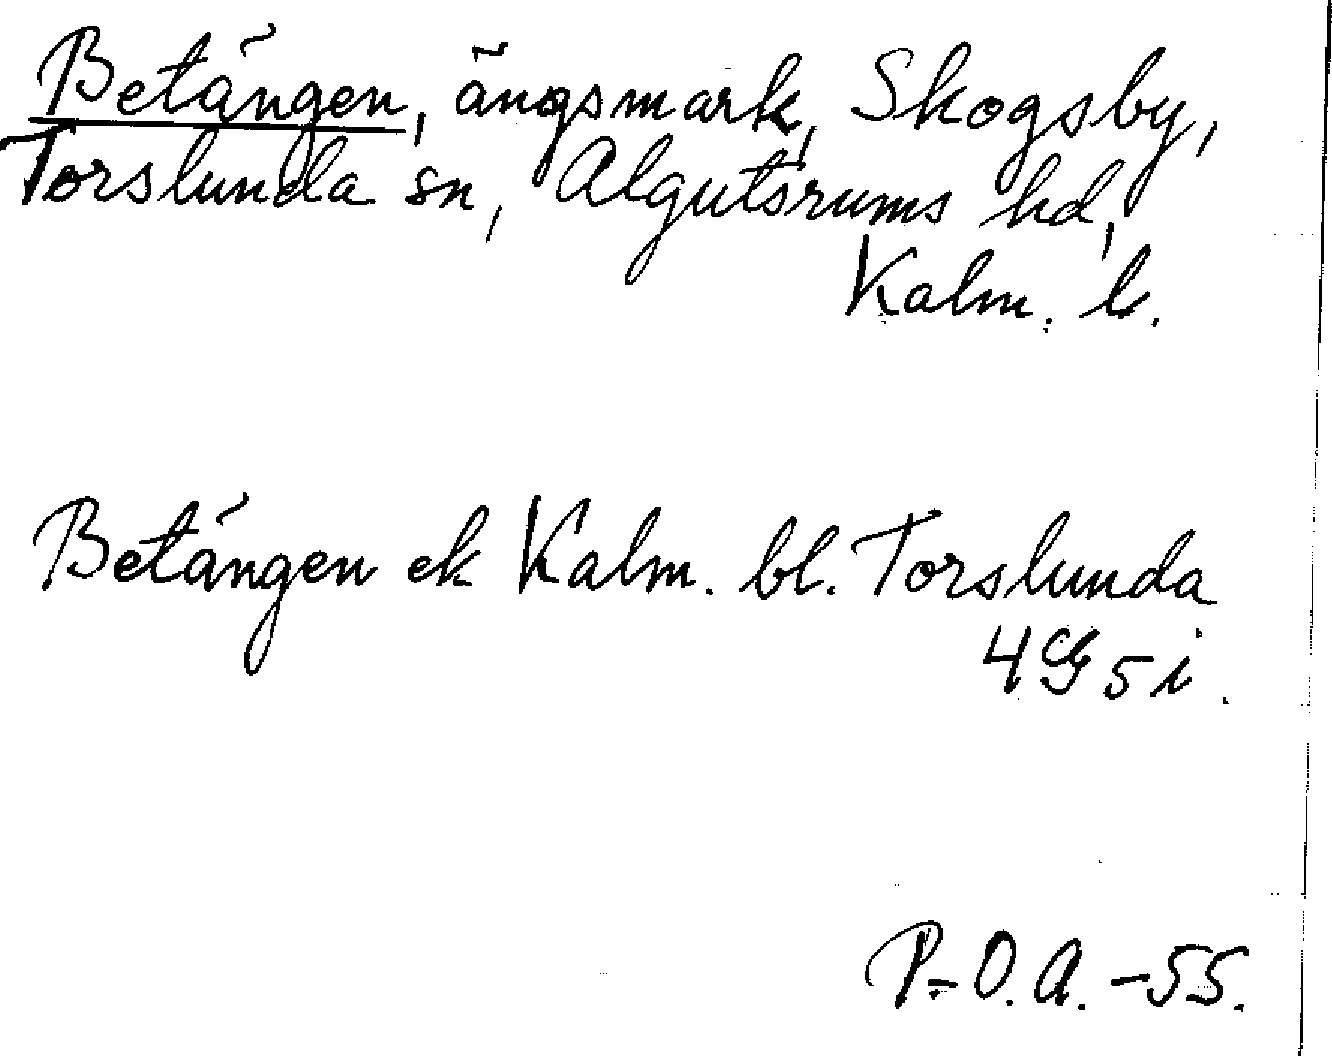 Betängen, ängsmark, Skogsby,
Torslunda sn, Algutsrums hd,
Kalm. l.
Betängen ek Kalm. bl. Torslunda
4G5i.
P-O.A. -55.